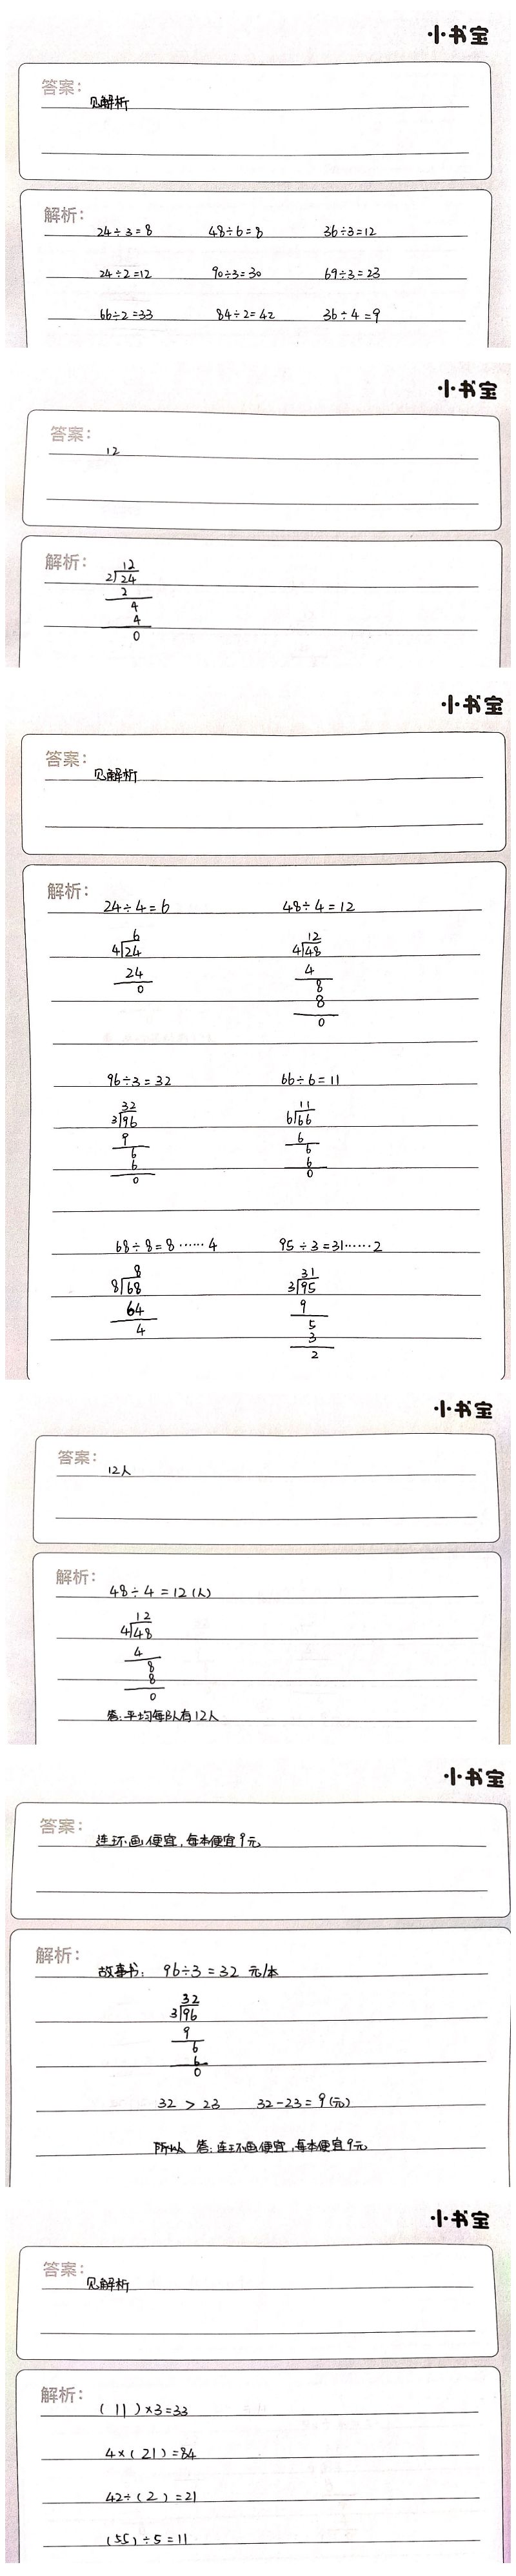 小书宝
答案：
见解析
解析：
24÷3=8 48÷6=8 36÷3=12
24÷2=12 90÷3=30 69÷3=23
66÷2=33 84÷2=42 36÷4=9
小书宝
答案：
12
解析：
12
2 24
2
4
4
0
小书宝
答案：
见解析
解析：
24÷4=6 48÷4=12
6 12
4 24 4 48
24 4
0 8
8
0
96÷3=32 66÷6=11
32 11
3 96 6 66
9 6
6 6
6 6
0 0
68÷8=8……4 95÷3=31……2
8 31
8 68 3 95
64 9
4 5
3
2
小书宝
答案：
12人
解析：
48÷4=12(人)
12
4 48
4
8
8
0
答:平均每队有12人
小书宝
答案：
连环画便宜,每本便宜9元
解析：
故事书: 96÷3=32 元/本
32
3 96
9
6
6
0
32 > 23 32-23=9(元)
所以 答:连环画便宜,每本便宜9元
小书宝
答案：
见解析
解析：
(11)×3=33
4×(21)=84
42÷(2)=21
(55)÷5=11